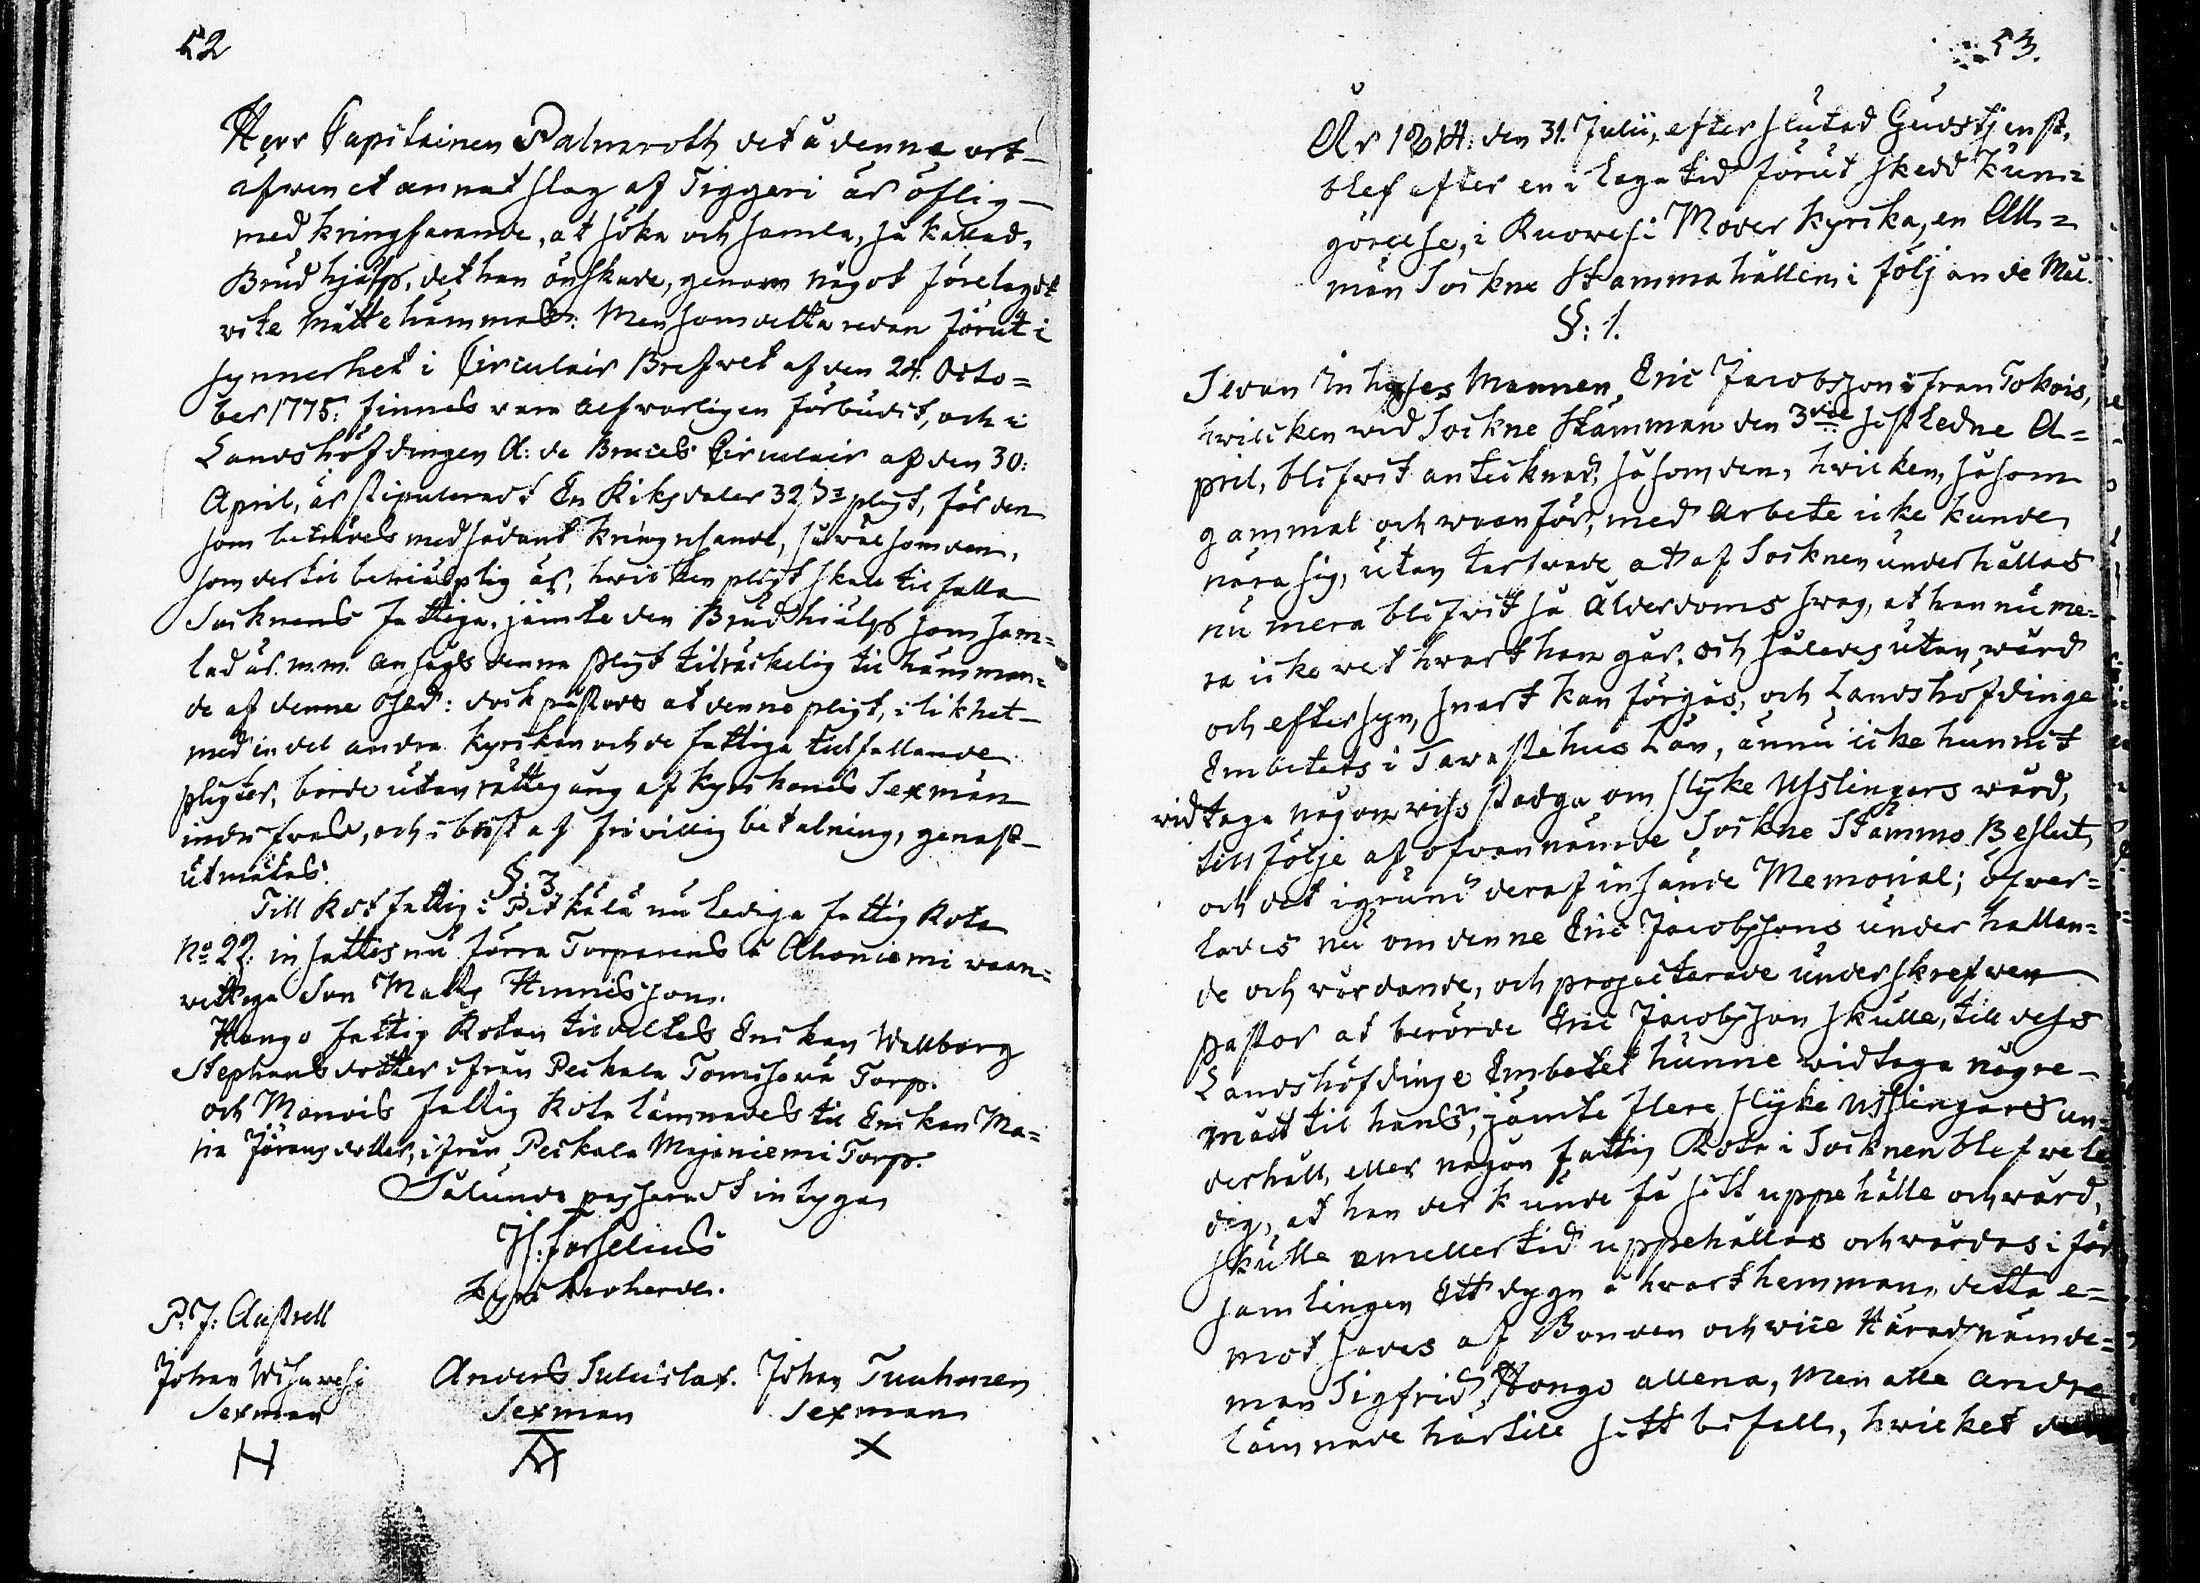 52
Herr Capitainen Palmroth det å denna ort
äfwen et annat slag af Tiggeri är öflig
med kringfarande, at söka och samla, så kallad,
Brudhjälp, det han önskade, genom något förelagdt
wite måtte hämmas: Men som detta redan förut i
synnerhet i Circulair Brefwet af den 24. Octo=
ber 1775. finnes vara alfwarligen förbudit, och i
Landshöfdingen A: de Bruces Circulair af den 30:
April, är stipuleradt En Riksdaler 32 ſz pligt, för den
som beträdes med sådant kringresande, såwäl som den,
som dertil behielplig är, hwilken pligt skall tilfalla
Socknens fattiga, jämte den Brudhielp som sam=
lad är. m.m. ansågs denna pligt tilräckelig til hämman=
de af denne osed: dock påstods at denne pligt, i likhet
med indel andra kyrkan och de fattiga tillfallande
pligter, borde utan rättegång af kyrkones Sexmän
indrifwas, och i brist af friwillig betalning, genast
utmätas.
§: 3.
Till Rotfattig i Petkälä nu lediga fattig Rote
No 22. insattes nu förra Torparens å Ahoniemi waan=
wettige Son Matts Hinricsson.
Hango fattig Rotan tildeltes Enikan Wallborg
Stephansdotter ifrån Peckala Tomisewä Torp.
och Manvis fattig Rota lämnades til Enikan Ma=
ria Jöransdotter, ifrån Peckala Majaniemi Torp.
Sålunda passeradt intygar
H: Forselius
Kyrkioherde.
P: J: Austrell
Johan Wihuresi Anders Suluslax. Johan Tuuhonen
Sexman Sexman Sexman
53.
År 1814. den 31. Julii, efter slutad Gudstjenst,
blef efter en i laga tid förut skedd kun=
görelse, i Ruowesi Moder Kyrka, en All=
män Sockne Stämma hållen i följande Mål.
§: 1.
Sedan Inhyses Mannen Eric Jacobsson ifrån Tokois,
hwilcken wid Sockne Stämman den 3die sistledne A=
pril, blifwit antecknad, såsom den, hwilken, såsom
gammal och wanför, med arbete icke kunde
nära sig, utan tarfwade at af Socknen underhållas
nu mera blifwit så ålderdoms swag, at han nu me=
ra icke wet hwart han går, och således utan wård
och eftersyn, snart kan förgås, och Landshöfdinge
Embetets i Tawastehus Län, ännu icke hunnit
widtaga någon wiss stadga om slyke Usslingars wård,
till följe af ofwannämde Sockne Stämmo Beslut,
och det i grund deraf insände Memorial; öfwer=
lades nu om denne Eric Jacobssons underhållan=
de och wårdande, och projecterade underskrefwen
Pastor at berörde Eric Jacobsson skulle, till dess
Landshöfdinge Embetet hunne widtaga någre
mått til hans, jämte flere slyke Usslingars un=
derhåll, eller någon fattig Rote i Socknen blefwe le
dig, at han der kunde få sitt uppehälle och wård,
skulle emellertid uppehållas och wårdas i för
samlingen Ett dygn å hwart hemman, detta e=
mot sades af Bonden och wice Häradsnämde=
man Sigfrid Hongo allena, Men alle andre
lämnade härtill sitt bifall, hwilket